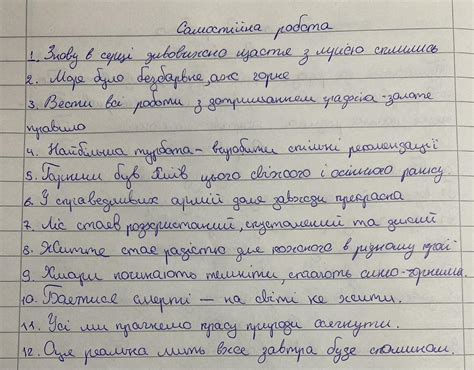 Самостійна робота
1. Знову в серці дивовижно щастя з мукою сплились
2. Море було безбарвне, аж чорне
3. Вести всі роботи з дотриманням графіка - золоте
правило
4. Найбільша турбота - виробити спільні рекомендації
5. Гарним був Київ цього свіжого і осіннього ранку.
6. У справедливих армій доля завжди прекрасна
7. Ліс стояв розхристаний, спустошений та дикий
8. Життя стає радістю для кожного в рідному краї
9. Хмари починають темніти, стають синьо-чорними.
10. Боятися смерті — на світі не жити.
11. Усі ми прагнемо красу природи осягнути.
12. Ця реальна мить вже завтра буде спомином.